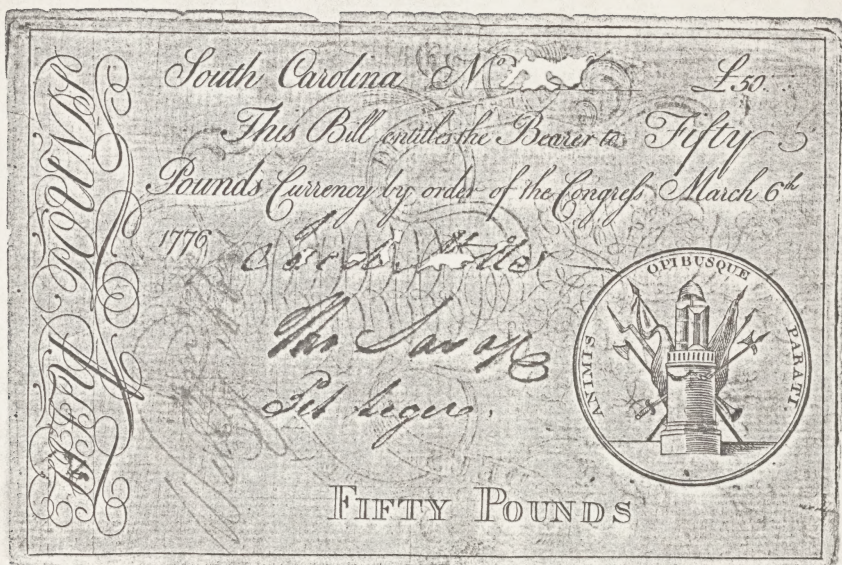 South Carolina Nº £50.
This Bill entitles the Bearer to Fifty
Pounds Currency by order of the Congress March 6th
1776
Pet Legere.
ANIMIS OPIBUSQUE PARATI.
FIFTY POUNDS